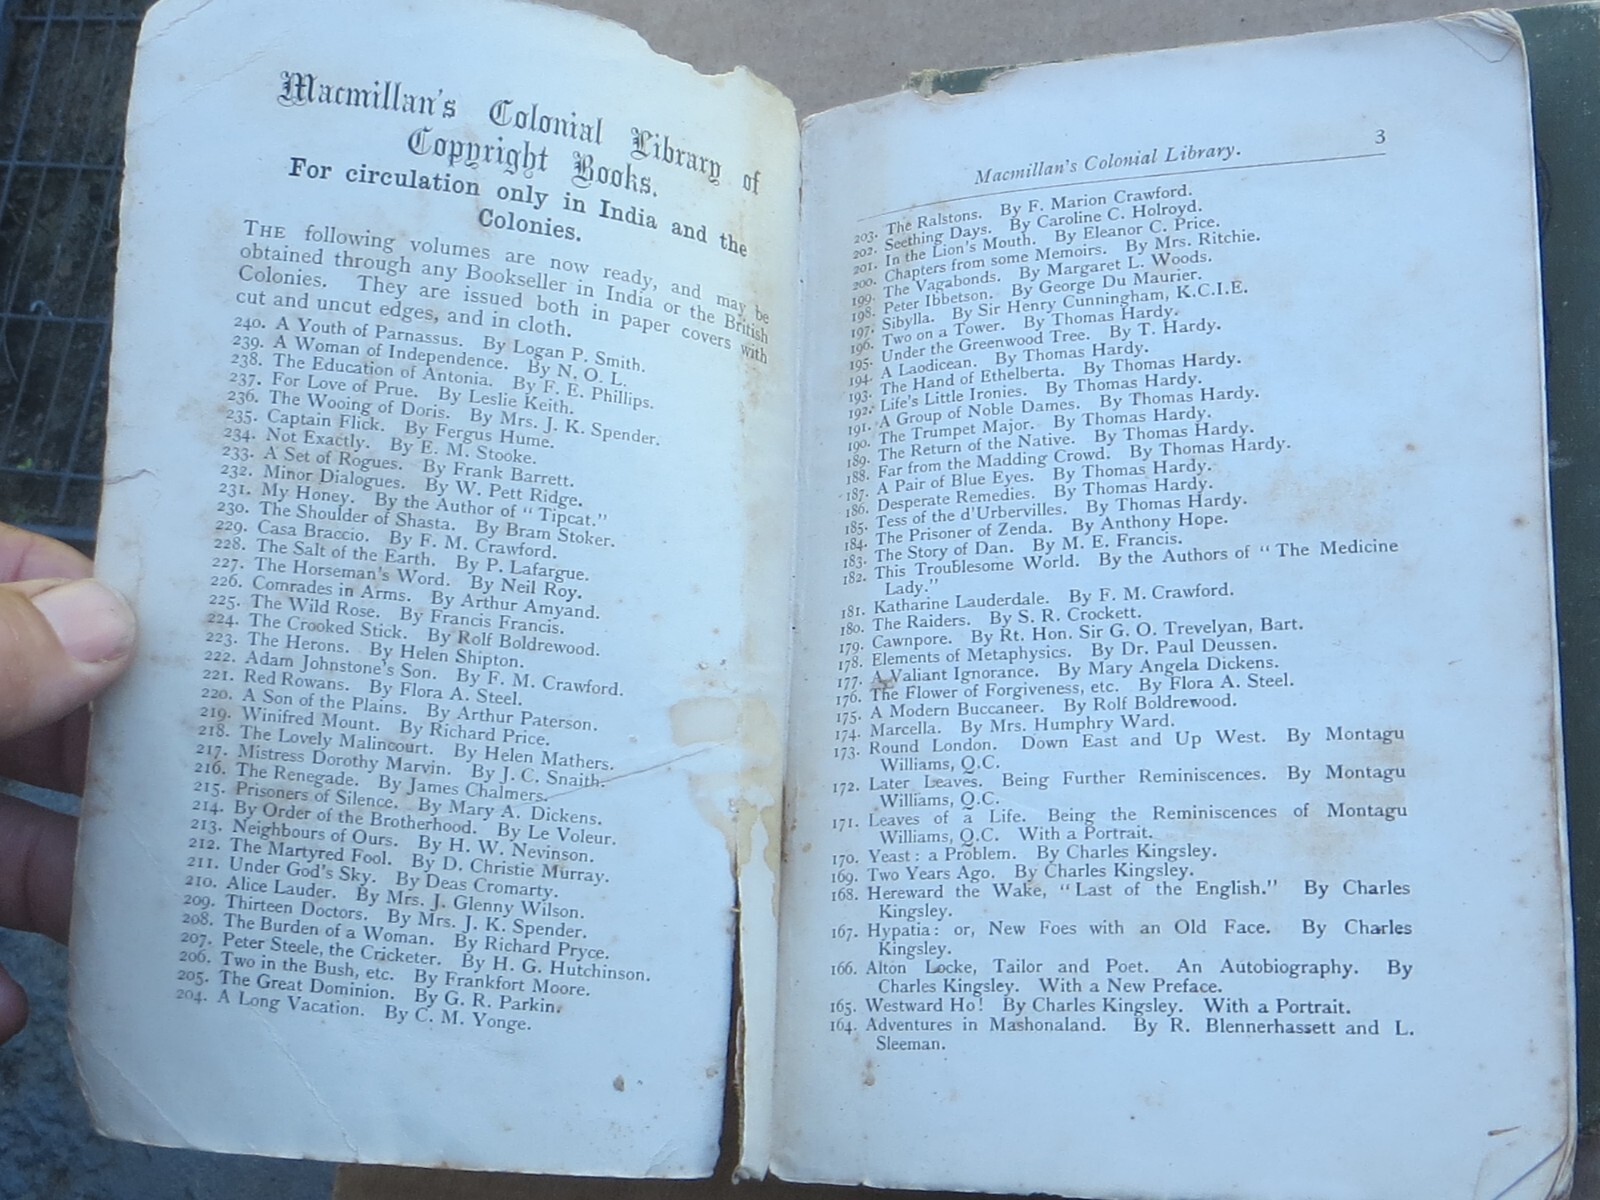 Macmillan's Colonial Library of
Copyright Books.
For circulation only in India and the
Colonies.
THE following volumes are now ready, and may be
obtained through any Bookseller in India or the British
Colonies. They are issued both in paper covers with
cut and uncut edges, and in cloth.
240. A Youth of Parnassus. By Logan P. Smith.
239. A Woman of Independence. By N. O. L.
238. The Education of Antonia. By F. E. Phillips.
237. For Love of Prue. By Leslie Keith.
236. The Wooing of Doris. By Mrs. J. K. Spender.
235. Captain Flick. By Fergus Hume.
234. Not Exactly. By E. M. Stooke.
233. A Set of Rogues. By Frank Barrett.
232. Minor Dialogues. By W. Pett Ridge.
231. My Honey. By the Author of "Tipcat."
230. The Shoulder of Shasta. By Bram Stoker.
229. Casa Braccio. By F. M. Crawford.
228. The Salt of the Earth. By P. Lafargue.
227. The Horseman's Word. By Neil Roy.
226. Comrades in Arms. By Arthur Amyand.
225. The Wild Rose. By Francis Francis.
224. The Crooked Stick. By Rolf Boldrewood.
223. The Herons. By Helen Shipton.
222. Adam Johnstone's Son. By F. M. Crawford.
221. Red Rowans. By Flora A. Steel.
220. A Son of the Plains. By Arthur Paterson.
219. Winifred Mount. By Richard Price.
218. The Lovely Malincourt. By Helen Mathers.
217. Mistress Dorothy Marvin. By J. C. Snaith.
216. The Renegade. By James Chalmers.
215. Prisoners of Silence. By Mary A. Dickens.
214. By Order of the Brotherhood. By Le Voleur.
213. Neighbours of Ours. By H. W. Nevinson.
212. The Martyred Fool. By D. Christie Murray.
211. Under God's Sky. By Deas Cromarty.
210. Alice Lauder. By Mrs. J. Glenny Wilson.
209. Thirteen Doctors. By Mrs. J. K. Spender.
208. The Burden of a Woman. By Richard Pryce.
207. Peter Steele, the Cricketer. By H. G. Hutchinson.
206. Two in the Bush, etc. By Frankfort Moore.
205. The Great Dominion. By G. R. Parkin.
204. A Long Vacation. By C. M. Yonge.
Macmillan's Colonial Library. 3
203. The Ralstons. By F. Marion Crawford.
202. Seething Days. By Caroline C. Holroyd.
201. In the Lion's Mouth. By Eleanor C. Price.
200. Chapters from some Memoirs. By Mrs. Ritchie.
199. The Vagabonds. By Margaret L. Woods.
198. Peter Ibbetson. By George Du Maurier.
197. Sibylla. By Sir Henry Cunningham, K.C.I.E.
196. Two on a Tower. By Thomas Hardy.
195. Under the Greenwood Tree. By T. Hardy.
194. A Laodicean. By Thomas Hardy.
193. The Hand of Ethelberta. By Thomas Hardy.
192. Life's Little Ironies. By Thomas Hardy.
191. A Group of Noble Dames. By Thomas Hardy.
190. The Trumpet Major. By Thomas Hardy.
189. The Return of the Native. By Thomas Hardy.
188. Far from the Madding Crowd. By Thomas Hardy.
187. A Pair of Blue Eyes. By Thomas Hardy.
186. Desperate Remedies. By Thomas Hardy.
185. Tess of the d'Urbervilles. By Thomas Hardy.
184. The Prisoner of Zenda. By Anthony Hope.
183. The Story of Dan. By M. E. Francis.
182. This Troublesome World. By the Authors of "The Medicine
Lady."
181. Katharine Lauderdale. By F. M. Crawford.
180. The Raiders. By S. R. Crockett.
179. Cawnpore. By Rt. Hon. Sir G. O. Trevelyan, Bart.
178. Elements of Metaphysics. By Dr. Paul Deussen.
177. A Valiant Ignorance. By Mary Angela Dickens.
176. The Flower of Forgiveness, etc. By Flora A. Steel.
175. A Modern Buccaneer. By Rolf Boldrewood.
174. Marcella. By Mrs. Humphry Ward.
173. Round London. Down East and Up West. By Montagu
Williams, Q.C.
172. Later Leaves. Being Further Reminiscences. By Montagu
Williams, Q.C.
171. Leaves of a Life. Being the Reminiscences of Montagu
Williams, Q.C. With a Portrait.
170. Yeast: a Problem. By Charles Kingsley.
169. Two Years Ago. By Charles Kingsley.
168. Hereward the Wake, "Last of the English." By Charles
Kingsley.
167. Hypatia: or, New Foes with an Old Face. By Charles
Kingsley.
166. Alton Locke, Tailor and Poet. An Autobiography. By
Charles Kingsley. With a New Preface.
165. Westward Ho! By Charles Kingsley. With a Portrait.
164. Adventures in Mashonaland. By R. Blennerhassett and L.
Sleeman.